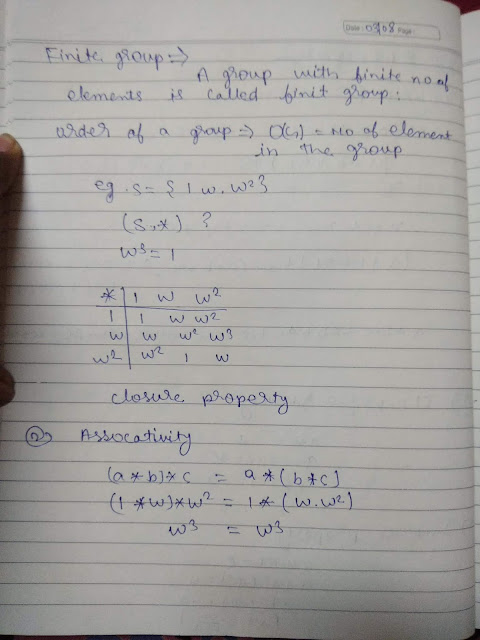 Date: 03/08 Page
Finite group ⇒
A group with finite no of
elements is called finit group.
order of a group ⇒ O(G) = No of element
in the group
eg. S = { 1 w. w² }
(S,*) ?
w³ = 1
* | 1 w w²
1 | 1 w w²
w | w w² w³
w² | w² 1 w
closure property
② Assocativity
(a*b)*c = a*(b*c)
(1*w)*w² = 1*(w.w²)
w³ = w³